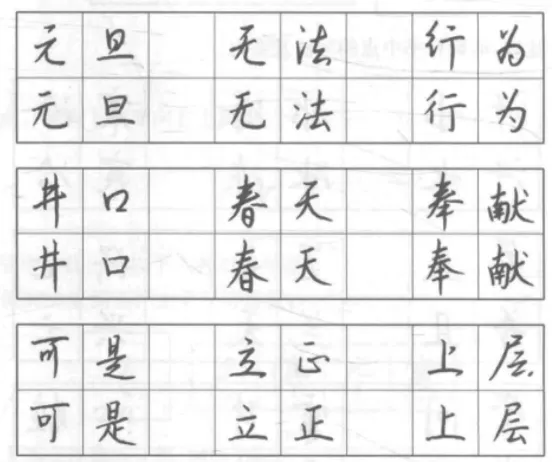 元旦 无法 行为
元旦 无法 行为
井口 春天 奉献
井口 春天 奉献
可是 立正 上层
可是 立正 上层